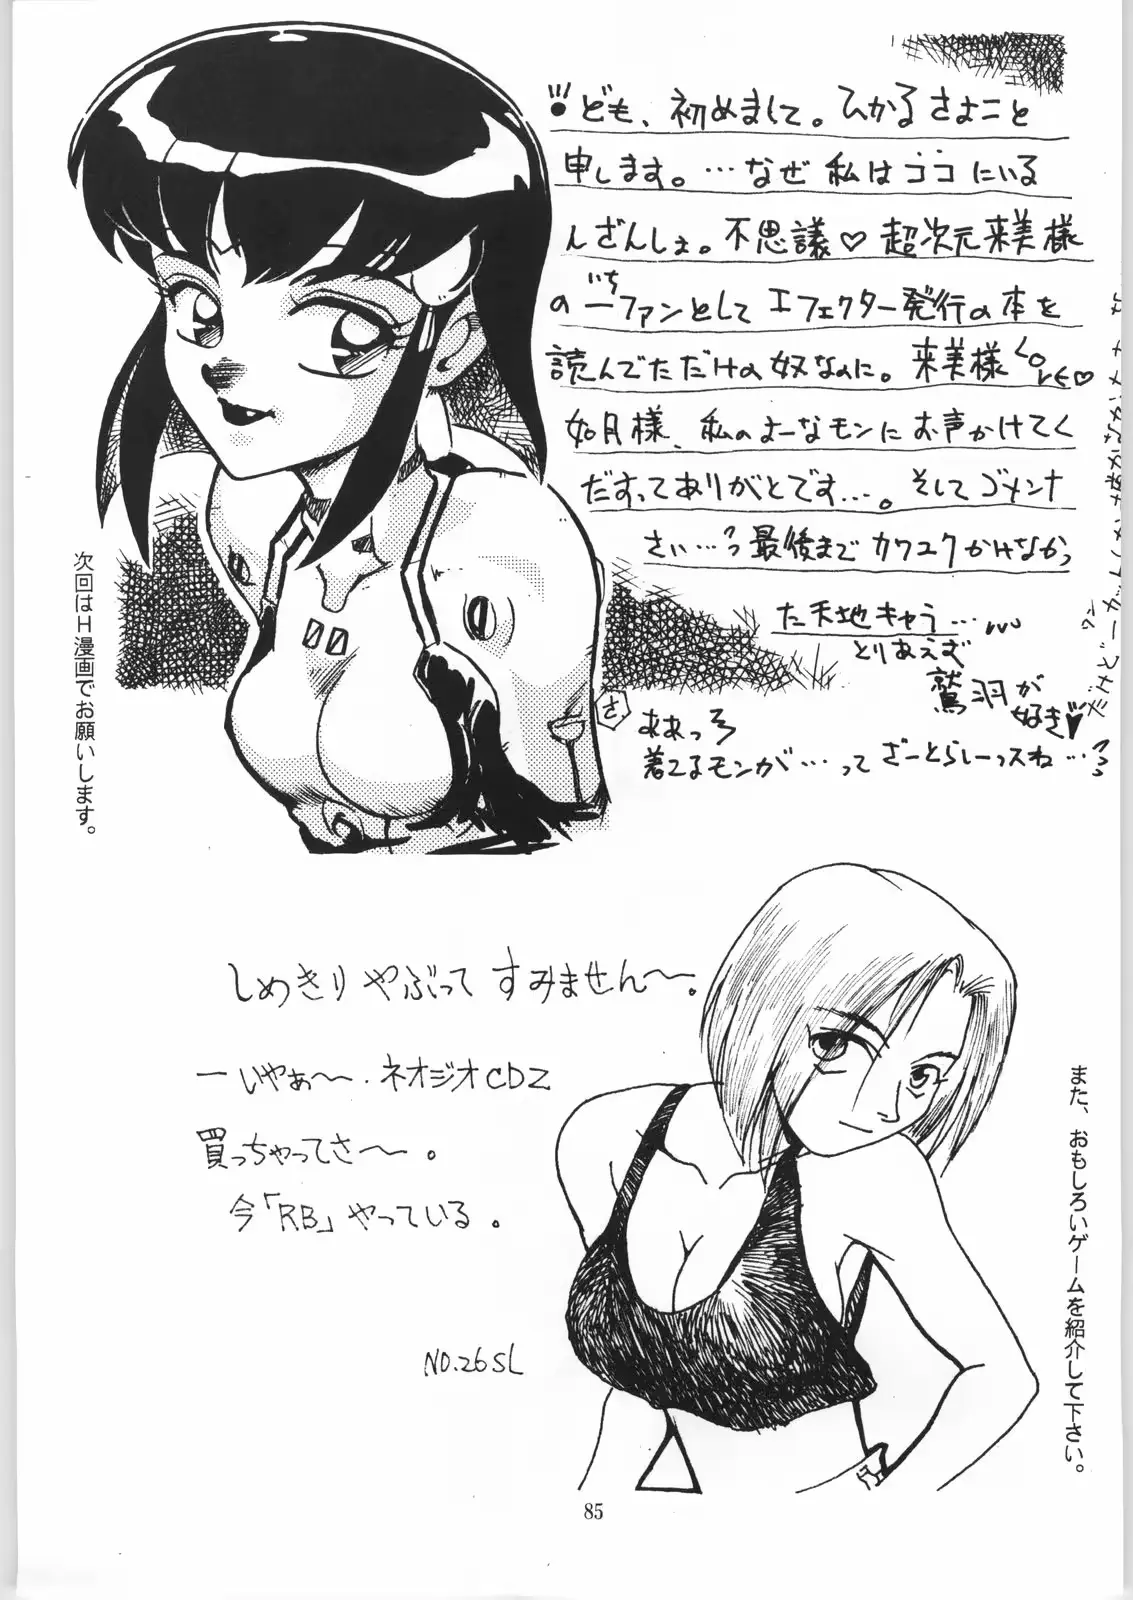 ども、初めまして。ひかるさよこと
申します。…なぜ私はココにいる
んざんしょ。不思議♡超次元来美様
の一ファンとしてエフェクター発行の本を
いち
読んでただけの奴なのに。来美様LOVE♡
如月様、私のよーなモンにお声かけてく
だすってありがとです…。そしてゴメンナ
さい…最後までカワユクかけなかっ
た天地キャラ…
とりあえず
鷲羽が
好き♥
さ
ああっ
着てるモンが…って ざーとらしーっスね…
次回はH漫画でお願いします。
しめきりやぶってすみません〜。
ーいやぁ〜.ネオジオCDZ
買っちゃってさ〜。
今「RB」やっている。
NO.26SL
また、おもしろいゲームを紹介して下さい。
00
85